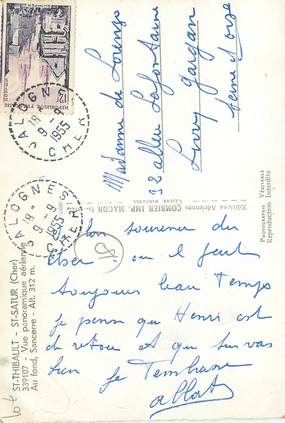 JALOGNES
18
9-9
1955
CHER
REPUBLIQUE FRANÇAISE
12F
JALOGNES
18
9-9
1955
CHER
Madame de Lorenzo
32 allée Lafontaine
Livry gargan
Seine et oise
Editions Aériennes COMBIER IMP. MACON
PHOTOGRAPHIE VÉRITABLE
Reproduction Interdite
ST-THIBAULT - ST-SATUR (Cher)
339107 - Vue panoramique aérienne
Au fond, Sancerre - Alt. 312 m.
bon souvenir du
Cher ou il fait
toujours beau temps
je pense que Henri est
de retour et que tu vas
bien je t'embrasse